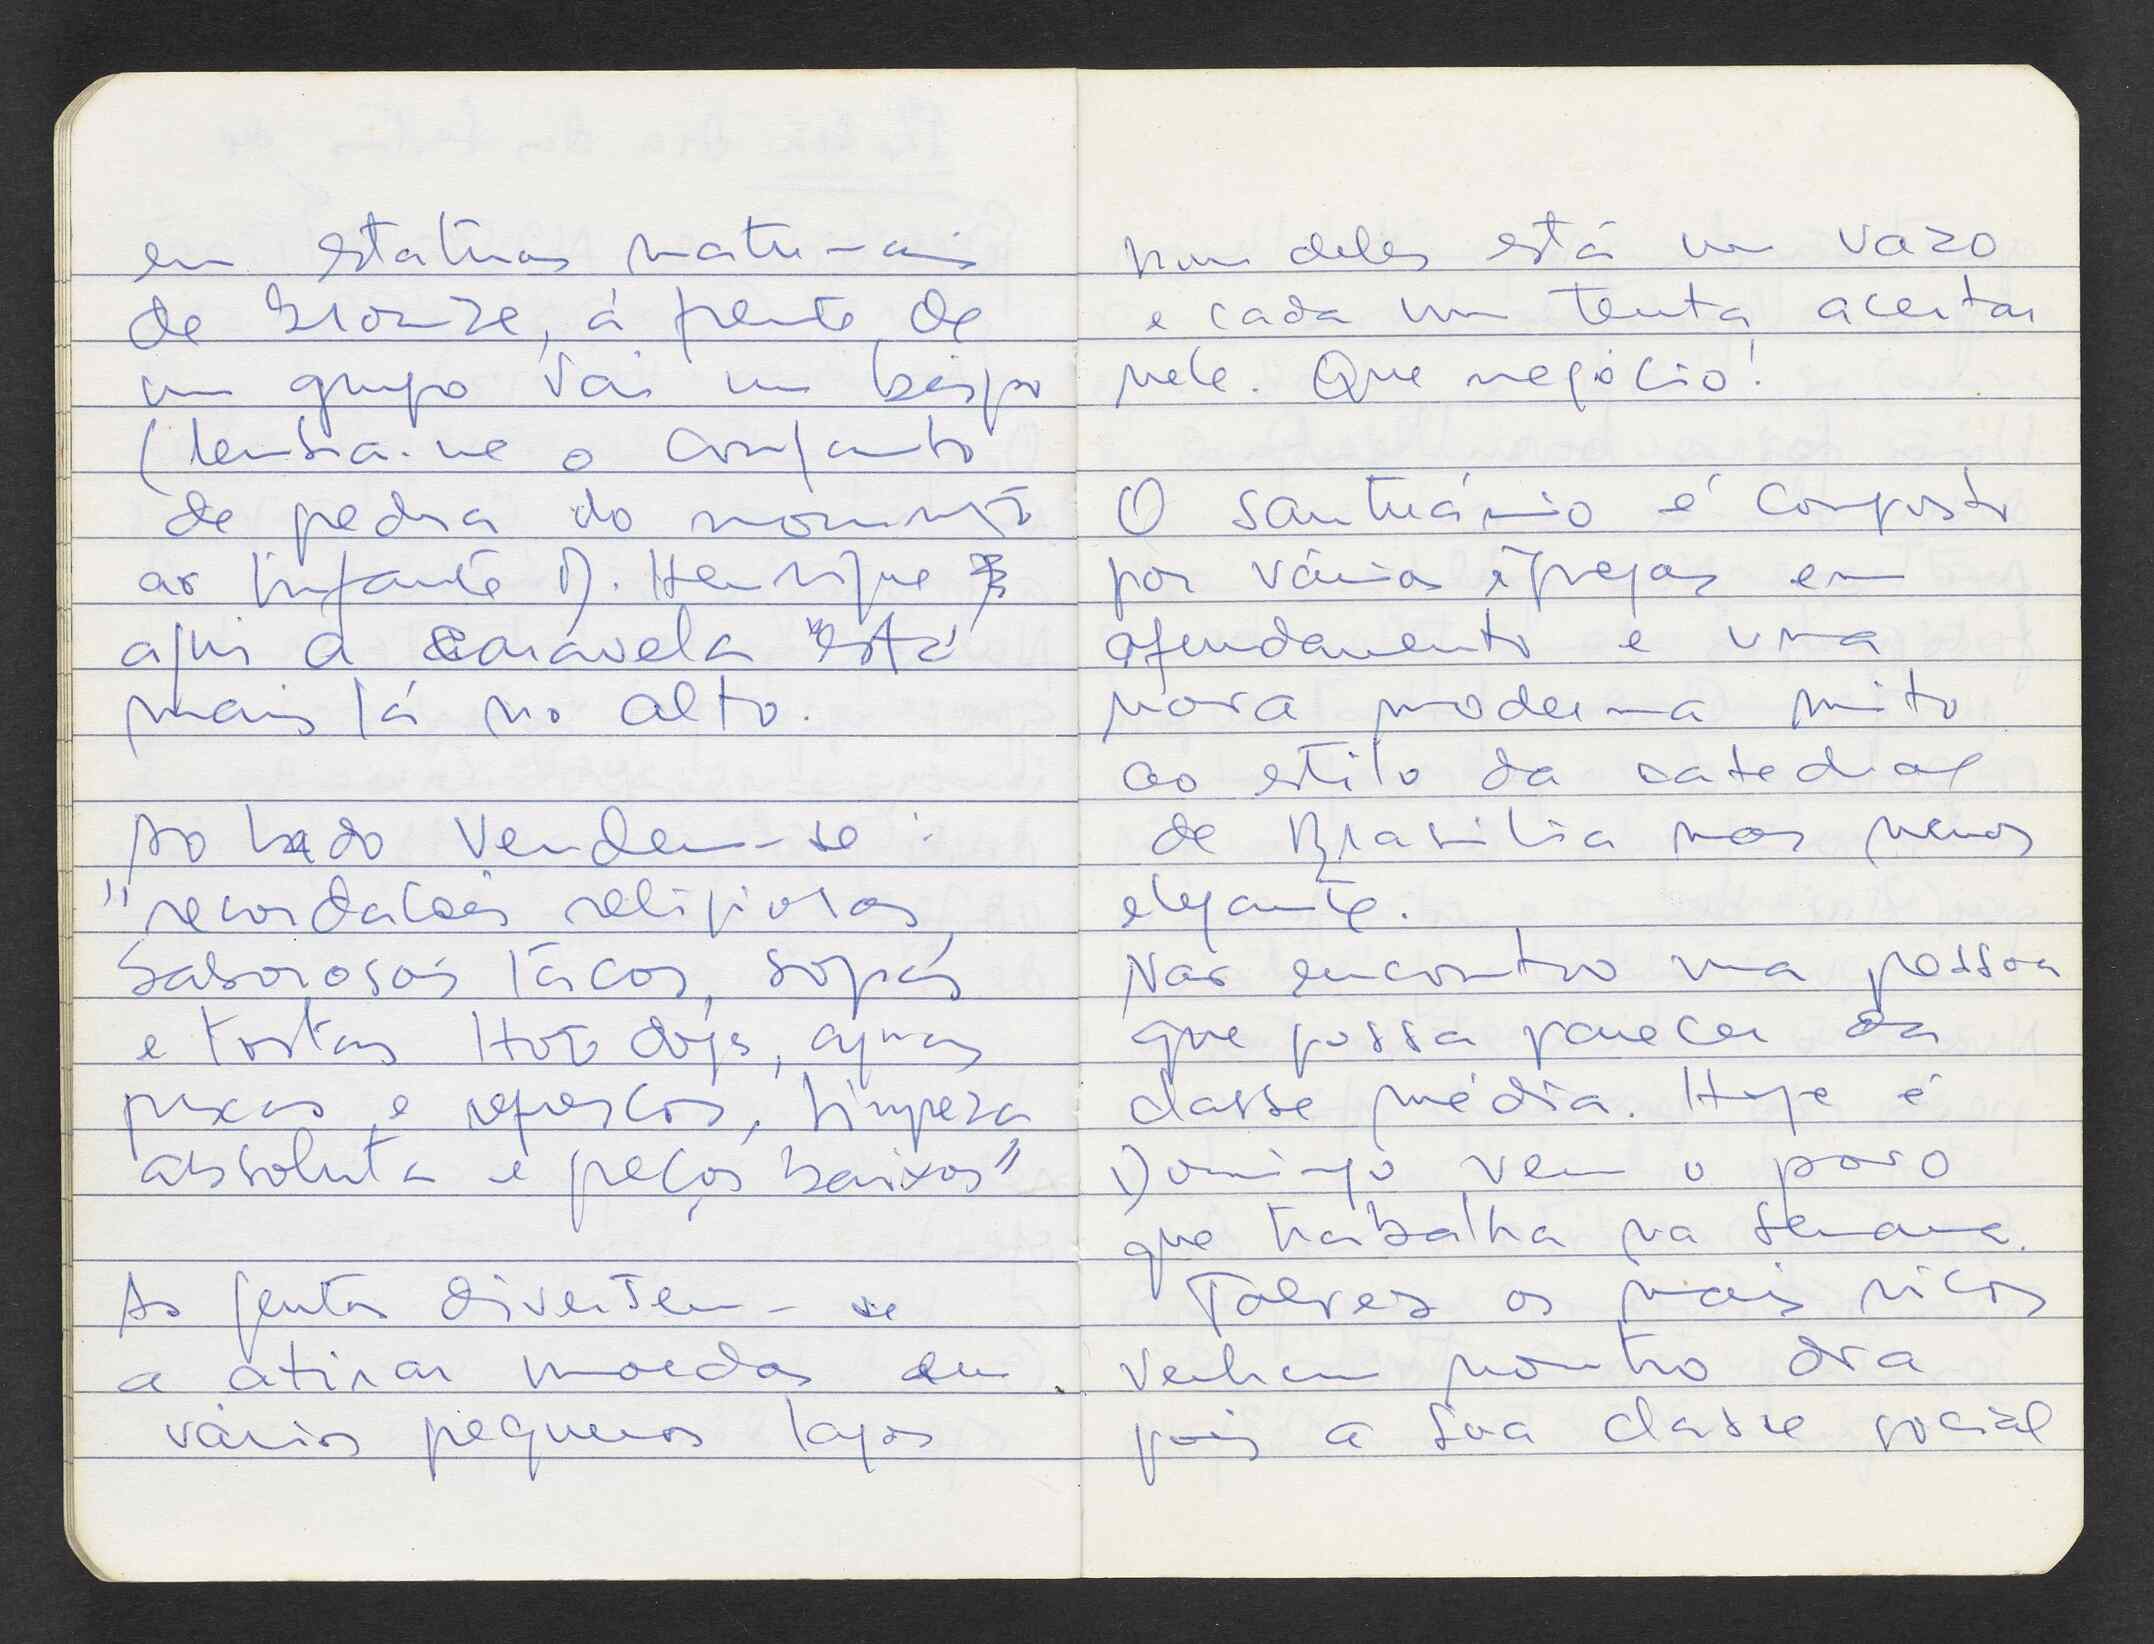 em estatuas naturais
de bronze, á frente de
um grupo vai um bispo
(lembra-me o conjunto
de pedra do monumto
ao Infante D. Henrique
aqui a caravela "está
mais lá no alto.
Ao lado vendem-se:
"recordações religiosas,
saborosos tácos, sopas
e tostas Hot dogs, aguas
e refrescos, limpeza
absoluta e preços baixos"
As gentes divertem-se
a atirar moedas em
vários pequenos lagos
num deles está um vazo
e cada um tenta acertar
nele. Que negócio!
O santuário é composto
por várias igrejas em
afundamento e uma
nova moderna muito
ao estilo da catedral
de Brasilia mas menos
elegante.
Não encontro uma pessoa
que possa parecer da
classe média. Hoje é
Domingo vem o povo
que trabalha na semana.
Talvez os mais ricos
venham noutro dia
pois a sua classe social